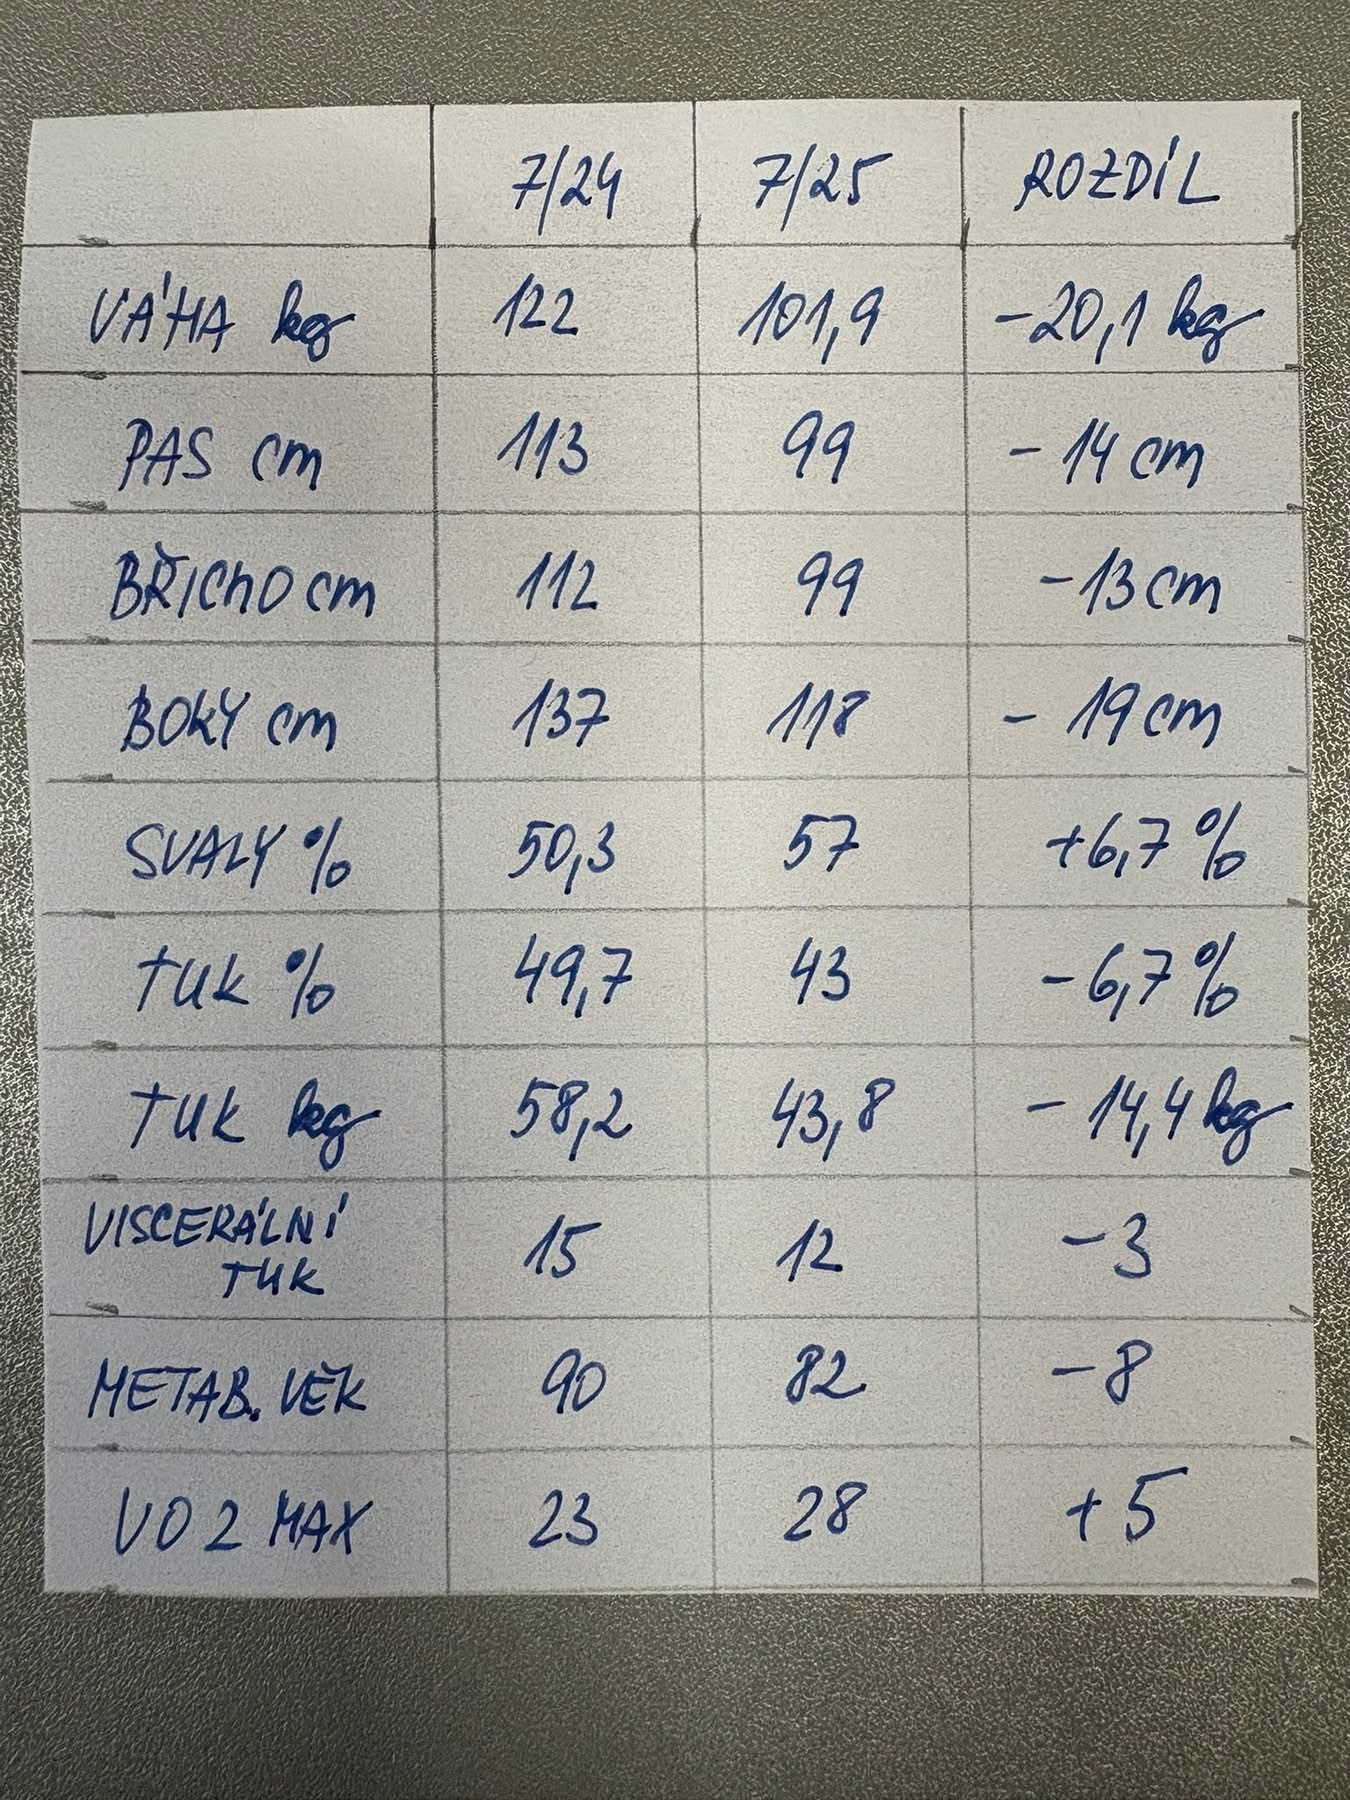 7/24 7/25 ROZDÍL
VÁHA kg 122 101,9 -20,1 kg
PAS cm 113 99 - 14 cm
BŘICHO cm 112 99 -13 cm
BOKY cm 137 118 - 19 cm
SVALY % 50,3 57 +6,7 %
TUK % 49,7 43 -6,7 %
TUK kg 58,2 43,8 - 14,4 kg
VISCERÁLNÍ
TUK 15 12 -3
METAB. VĚK 90 82 -8
VO 2 MAX 23 28 +5